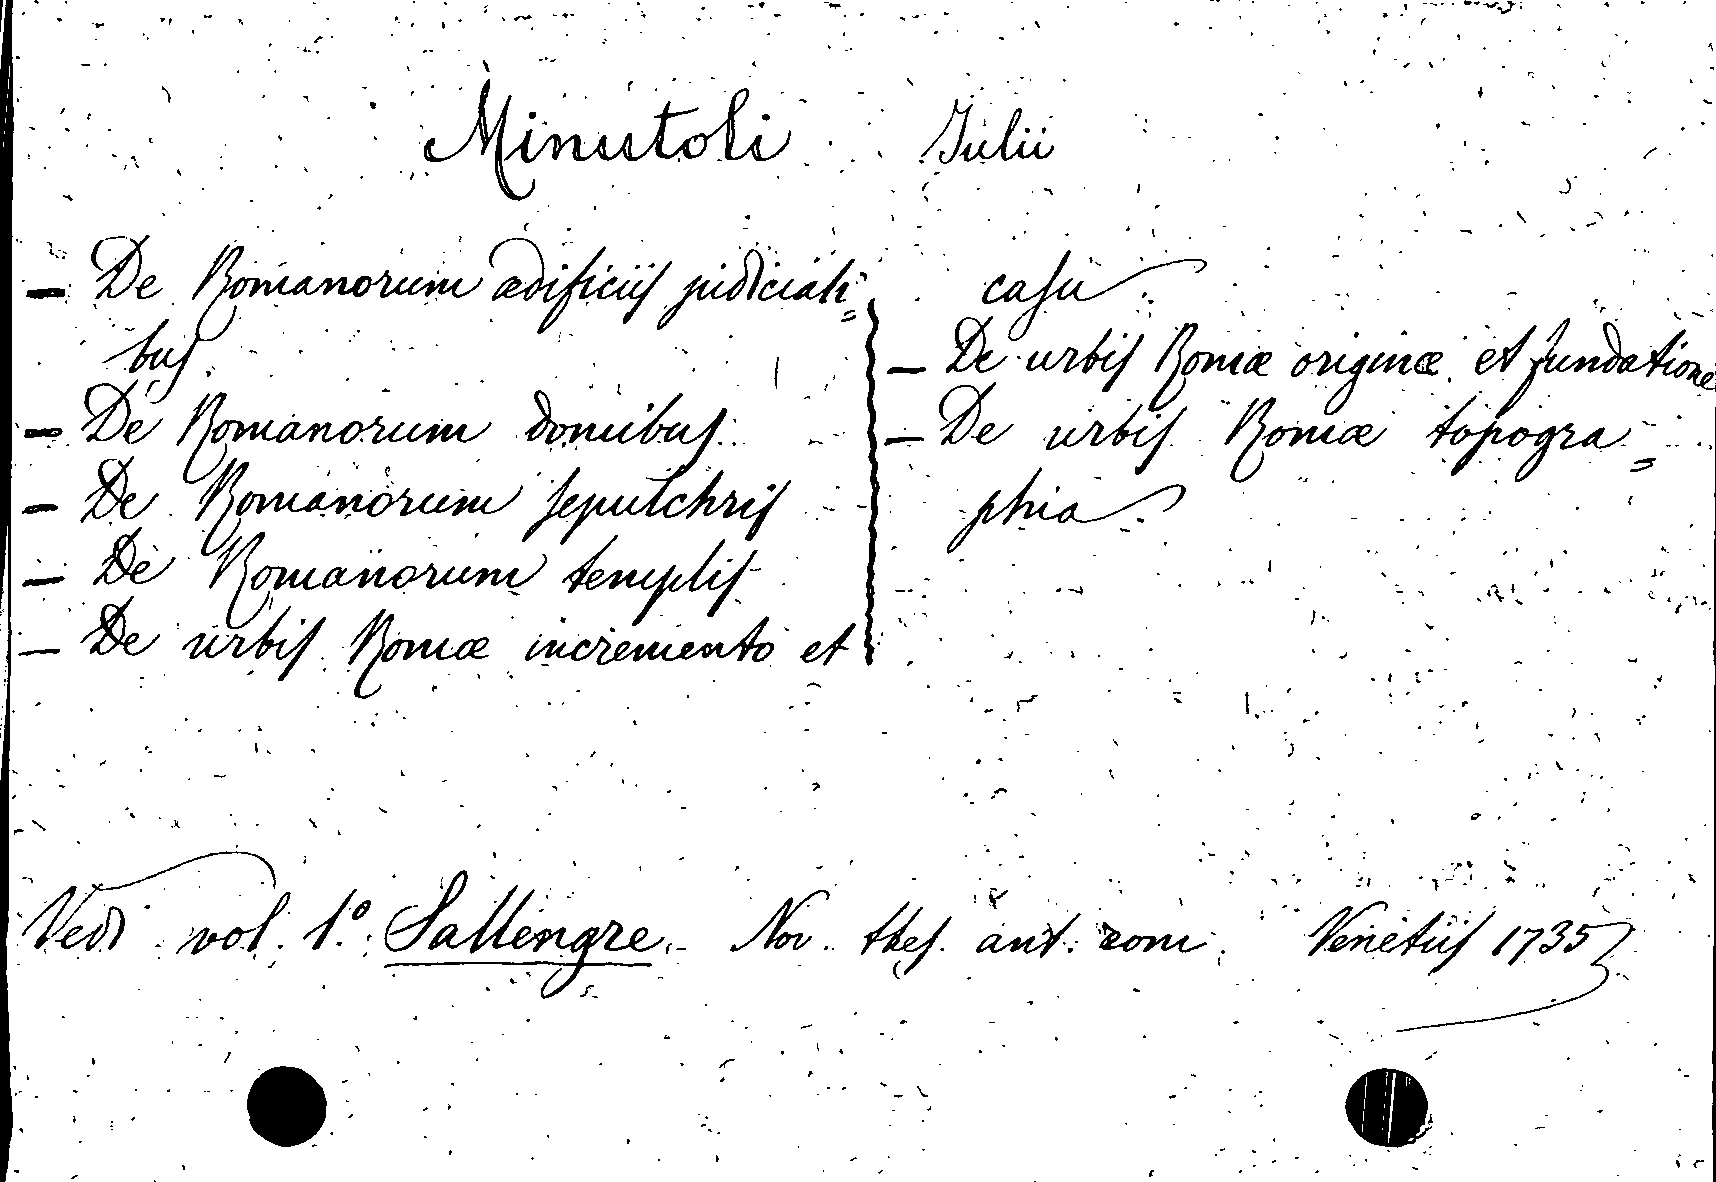 Minutoli Julii
– De Romanorum ædificiis judiciali=
bus.
– De Romanorum domibus.
– De Romanorum sepulchris
– De Romanorum templis
– De urbis Romæ incremento et
casu
– De urbis Romæ originæ et fundatione
– De urbis Romæ topogra=
phia
Vedi vol. 1.º Sallengre. Nov. thes. ant. rom. Venetiis 1735